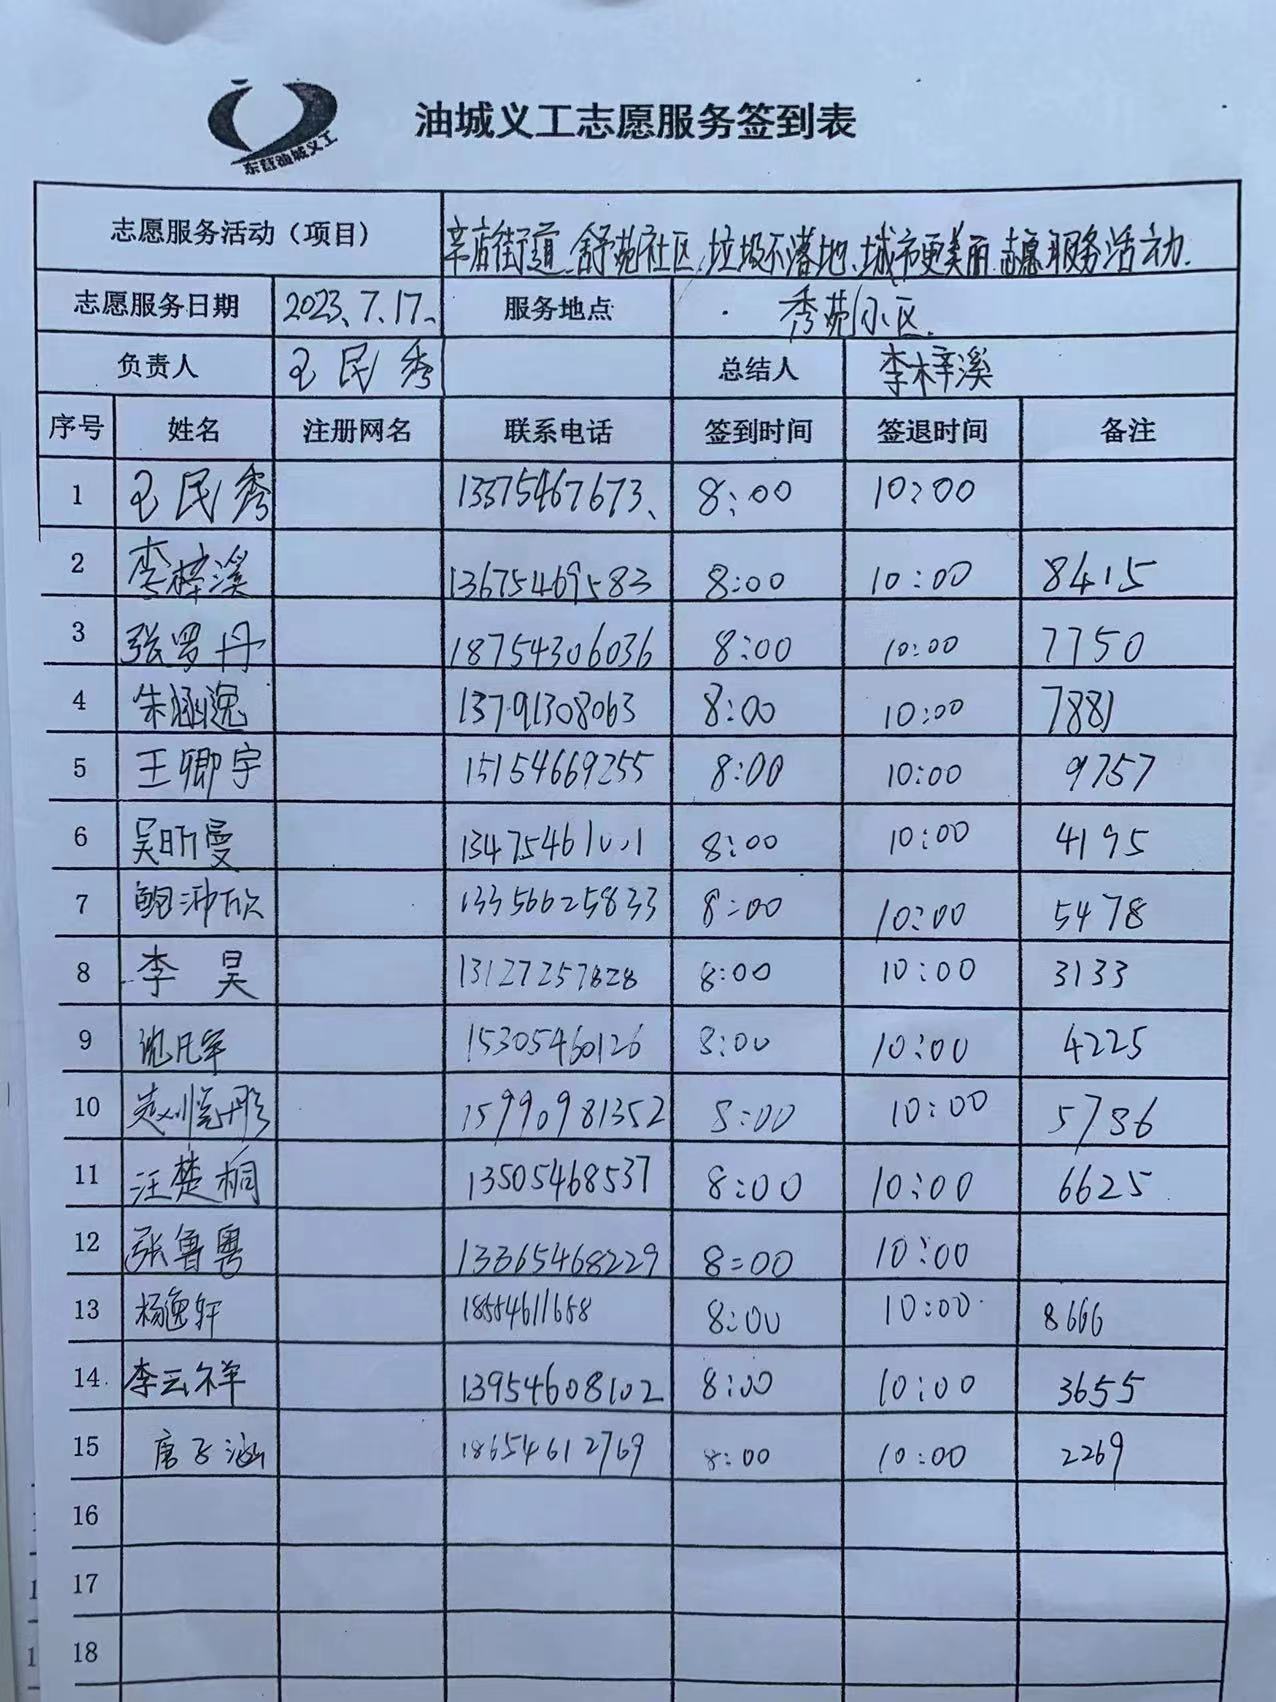 东营油城义工
油城义工志愿服务签到表
志愿服务活动（项目） 辛店街道、舒苑社区,垃圾不落地、城市更美丽.志愿服务活动.
志愿服务日期 2023、7.17、 服务地点 秀苑小区.
负责人 王民秀 总结人 李梓溪
序号 姓名 注册网名 联系电话 签到时间 签退时间 备注
1 王民秀 13375467673、 8:00 10:00
2 李梓溪 13675469583 8:00 10:00 8415
3 张罗丹 18754306036 8:00 10:00 7750
4 朱涵逸 13791308063 8:00 10:00 7881
5 王卿宇 15154669255 8:00 10:00 9757
6 吴昕曼 8:00 10:00 4195
7 鲍沛欣 13356625833 8:00 10:00 5478
8 李昊 13127257828 8:00 10:00 3133
9 15305460126 8:00 10:00 4225
10 15990981352 8:00 10:00 5786
11 汪楚桐 13505468537 8:00 10:00 6625
12 张鲁粤 13365468229 8:00 10:00
13 杨逸轩 18554611658 8:00 10:00 8666
14 李云祥 13954608102 8:00 10:00 3655
15 唐飞涵 18654612769 8:00 10:00 2269
16
17
18